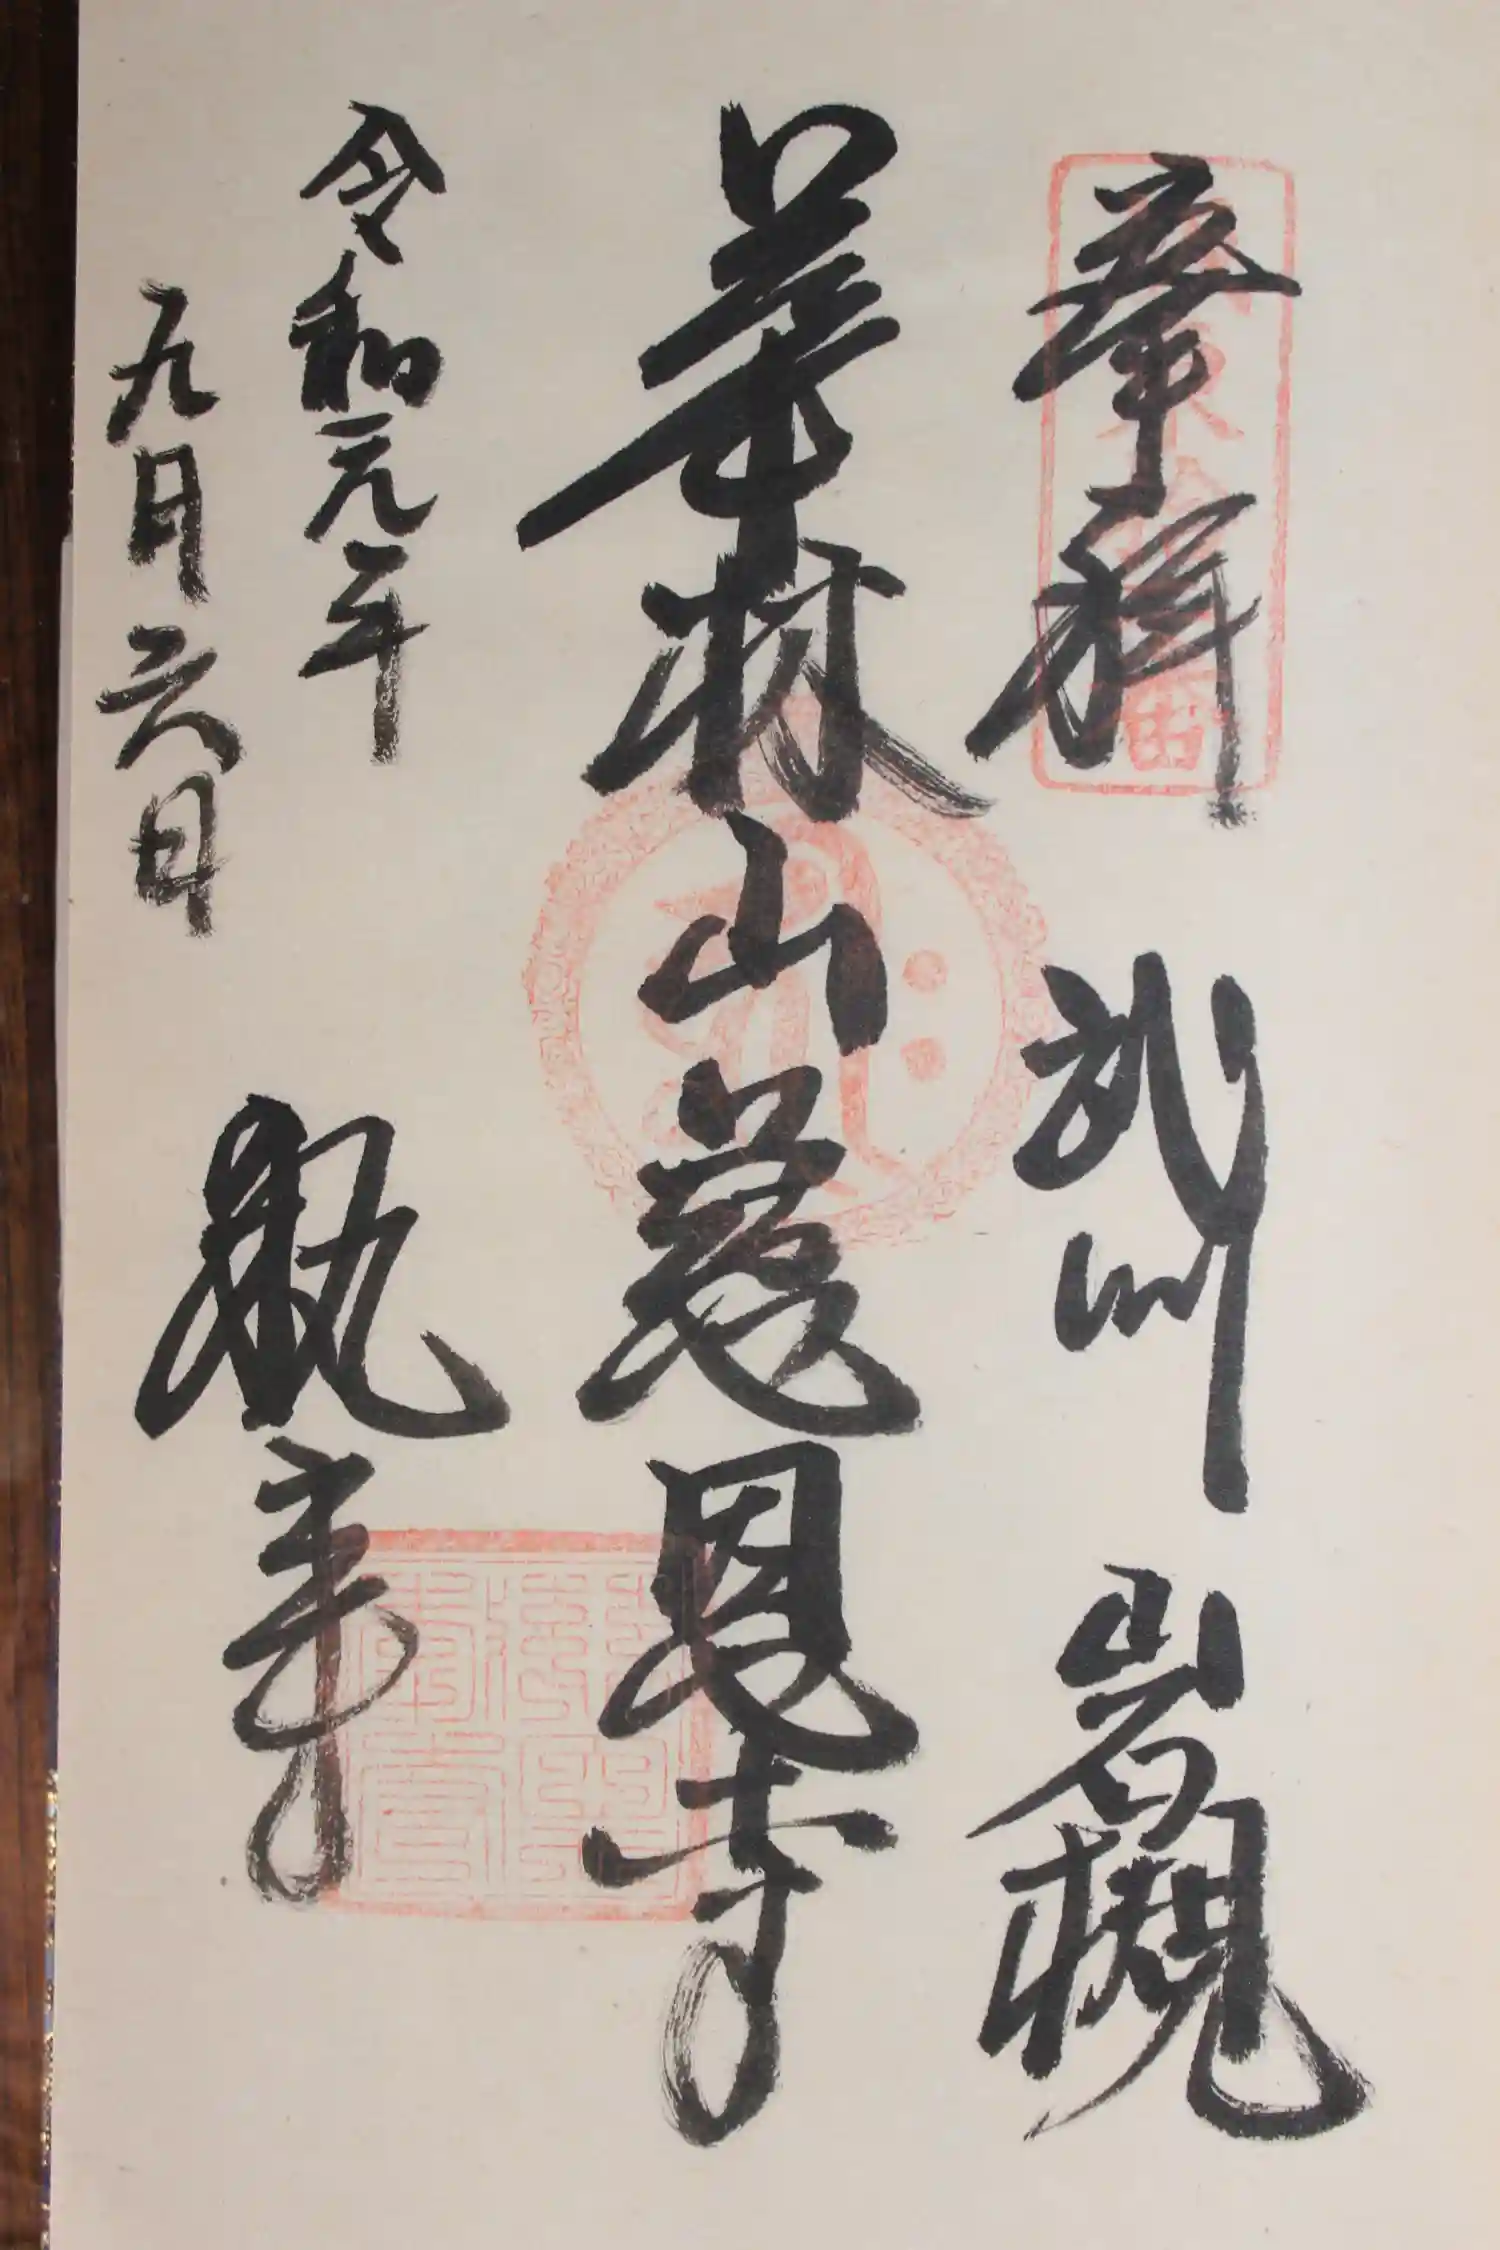 奉拝 武州 岩槻
華林山慈恩寺
令和元年
九月六日
執事